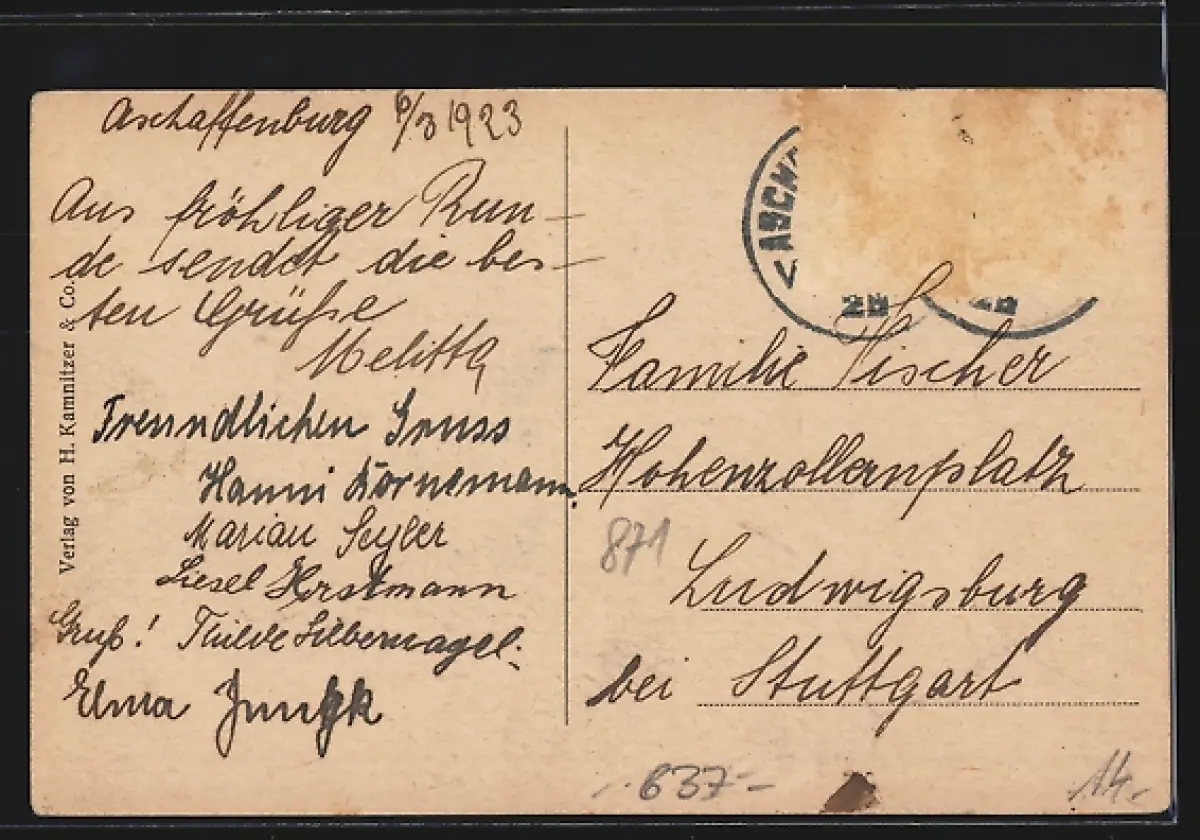 Aschaffenburg 6/3 1923
Aus fröhliger Run-
de sendet die bes-
ten Grüße
Melitta
Freundlichen Gruss
Hanni Körnemann.
Marian Seyler
Liesel Horstmann
Gruß! Thilde Silbernagel.
Elma
Verlag von H. Kamnitzer & Co.
ASCH
Familie Fischer
Hohenzollernplatz
871
Ludwigsburg
bei Stuttgart
637-
14.